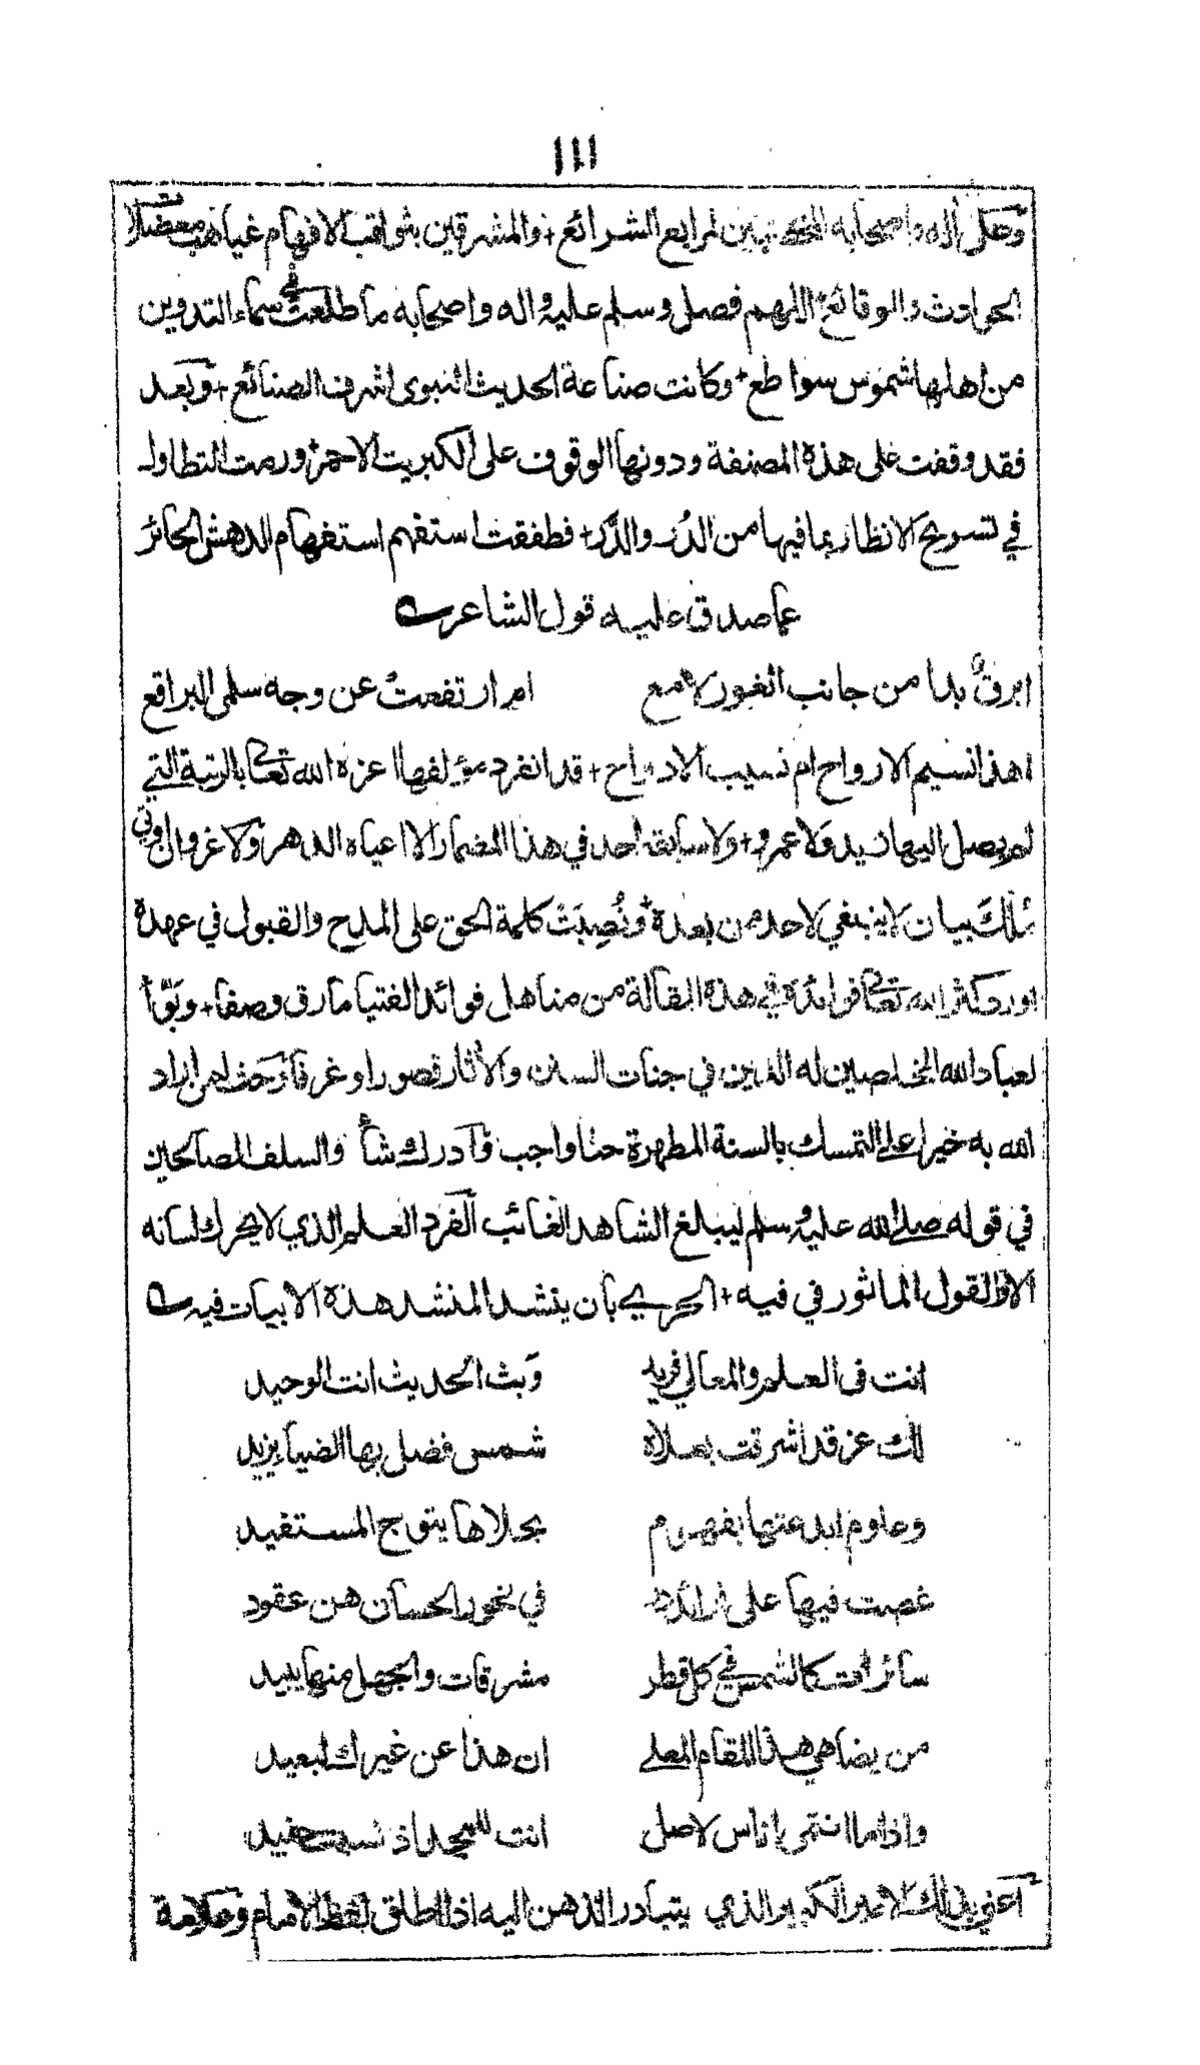 ١١١
وعلى اله واصحابه المخصصين لمرابع الشرائع + والمشرقين بثواقب الافهام غياهب معضلات
الحوادث والوقائع + اللهم فصلى وسلم عليه واله واصحابه ما طلعت في سماء التدوين
من اهلها شموس سواطع + وكانت صناعة الحديث النبوى اشرف الصنائع + وبعد
فقد وقفت على هذه المصنفة ودونها الوقوف على الكبريت الاحمر + ورمت التطاول
في تسريح الانظار بما فيها من الدُرر والدُّرر + فطفقت استفهم استفهام الدهش الحائر
عما صدق عليه قول الشاعر ـه
ابرقٌ بدا من جانب الغور لامع ام ارتفعت عن وجه سلمى البراقع
اهذا نسيم الارواح ام نسيب الادواح + قد انفرد مؤلفها اعزه الله تعالى بالرتبة التي
لم يصل اليها زيد ولا عمرو + ولا سابقه احد في هذا المضمار الا اعياه الدهر ولا غرو ان اوتي
ملك بيان لا ينبغي لاحد من بعده + ونُصِبَتْ كلمة الحق على المدح والقبول في عهده
اورد كثر الله تعالى فوائده في هذه المقالة من مناهل فوائد الفتيا ما رق وصفا + وبوّأ
لعباد الله المخلصين له الدين في جنات السنن والأثار قصورا وغرفا + حث لمن اراد
الله به خيرا على التمسك بالسنة المطهرة حثا واجب وادرك شأو السلف الصالحين
في قوله صلى الله عليه وسلم ليبلغ الشاهد الغائب الفرد العلم الذي لا يحرك لسانه
الا والقول الماثور في فيه + الحري بان ينشد المنشد هذه الابيات فيه ـه
انت فى العلم والمعالي فريد وبث الحديث انت الوحيد
لك عز قد اشرقت بعلاه شمس فضل بها الضيا يزيد
وعلوم ابدعتها بفهوم بحلاها يتوج المستفيد
غصت فيها على فرائد في نحور الحسان هن عقود
سائرات كالشمس في كل قطر مشرقات والجهل منها يبيد
من يضاهي هذا المقام المعلى ان هذا عن غيرك لبعيد
واذا ما انتمى اناس لاصل انت للمجد اذ نسبت حفيد
اعني بذلك الامير الكبير الذي يتبادر الذهن اليه اذا اطلق لفظ الامام وعلامة